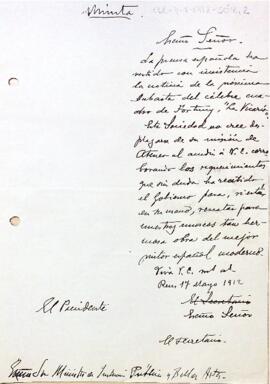 Minuta
Excmo Señor
La prensa española ha
vertido con insistencia
la noticia de la próxima
subasta del célebre cua
dro de Fortuny, "La Vicaría".
Esta Sociedad no cree des
plazara de su misión de
Ateneo al acudir á V.E. corro
borando los requerimientos
que sin duda ha recibido
el Gobierno para, si está
en su mano, rescatar para
nuestros museos tan her
mosa obra del mejor
pintor español moderno.
Viva V.E. m. a.
Reus, 17 Mayo 1912
El Secretario
El Presidente
Excmo Señor
El secretario.
Excmo Sor Ministro de Instrucn Pública y Bellas Artes